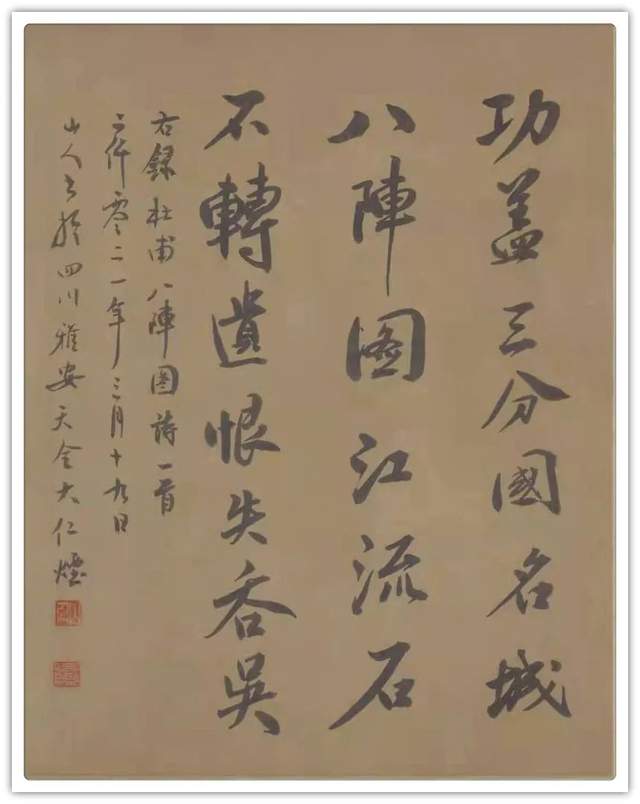 功盖三分国名城
八陣图江流石
不轉遺恨失吞吳
右録杜甫八陣图詩一首
二仟零二一年三月十九日
山人书於四川雅安天全大仁煙